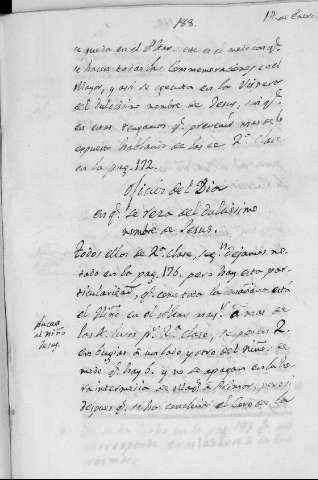 188.
17. de Enero.
se queda en el Altar: este es el modo con q.e
se hacen todas las Commemoraciones en el
Mayor, y assi se executa en las Visperas
del dulcissimo nombre de Jesus, sin q.e
en estas tengamos q.e prevenir mas de lo
expuesto hablando de las de 2.a Clase
en la pag. 172.
Oficios del Dia
en q.e se reza del dulcissimo
nombre de Jesus.
Todos ellos de 2.a clase, seg.n dejamos no-
tado en la pag. 176, pero hay esta par-
ticularidad, q.e como toda la mañana está
el Niño en el Altar may.r á mas de
las luces p.r 2.a clase, se ponen 2.
en bugias á un lado y otro del Niño: de
modo q.e hay 6. y no se apagan en la ho-
ra intermedia de Prima, pues
despues q.e se ha concluido el Coro de la
al niño
Jesus.